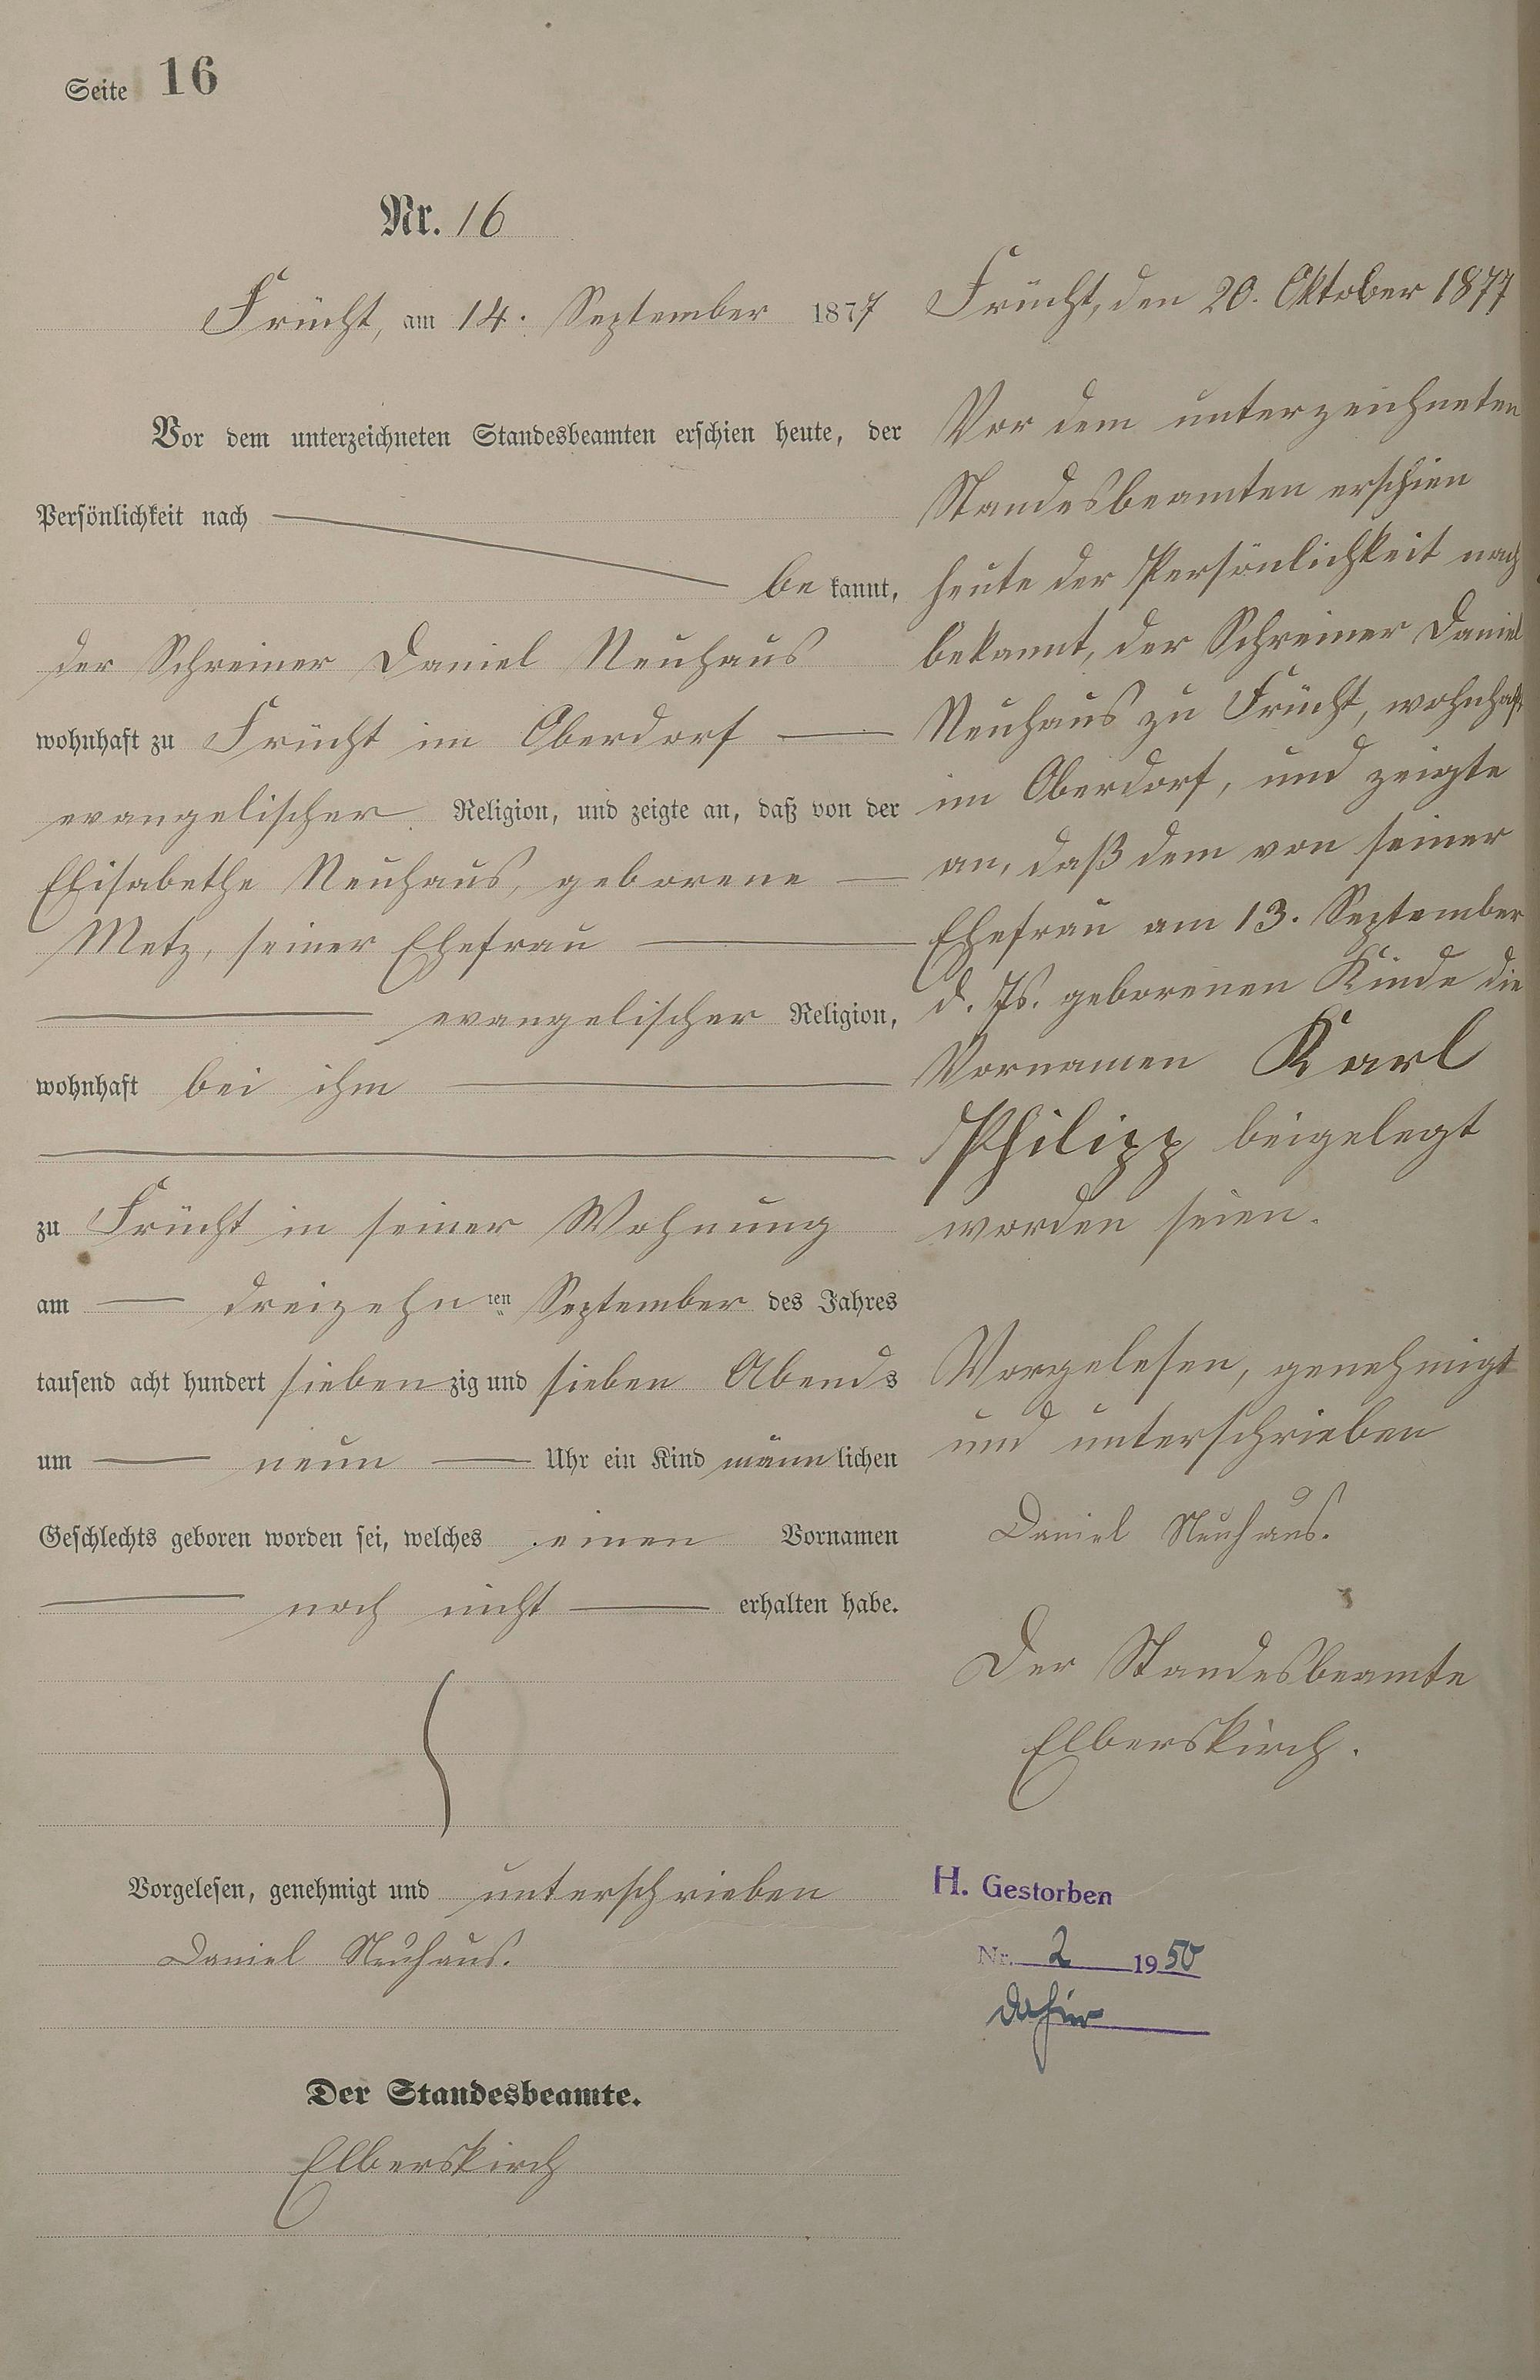 Seite 16
Nr. 16
Frücht, am 14. September 1877
Vor dem unterzeichneten Standesbeamten erschien heute, der
Persönlichkeit nach
be kannt,
der Schreiner Daniel Neuhaus
wohnhaft zu Frücht im Oberdorf
evangelischer Religion, und zeigte an, daß von der
Elisabethe Neuhaus, geborene
Metz, seiner Ehefrau
evangelischer Religion,
wohnhaft bei ihm
zu Frücht in seiner Wohnung
am dreizehn ten September des Jahres
tausend acht hundert sieben zig und sieben Abends
um neun Uhr ein Kind männ lichen
Geschlechts geboren worden sei, welches einen Vornamen
noch nicht erhalten habe.
Vorgelesen, genehmigt und unterschrieben
Daniel Neuhaus.
Der Standesbeamte.
Elberskirch
Frücht, den 20. Oktober 1877
Vor dem unterzeichneten
Standesbeamten erschien
heute der Persönlichkeit nach
bekannt, der Schreiner Daniel
Neuhaus zu Frücht, wohnhaft
im Oberdorf, und zeigte
an, daß dem von seiner
Ehefrau am 13. September
d. Js. geborenen Kinde die
Vornamen Karl
Philipp beigelegt
worden seien.
Vorgelesen, genehmigt
und unterschrieben
Daniel Neuhaus.
Der Standesbeamte
Elberskirch.
H. Gestorben
Nr. 2 1950